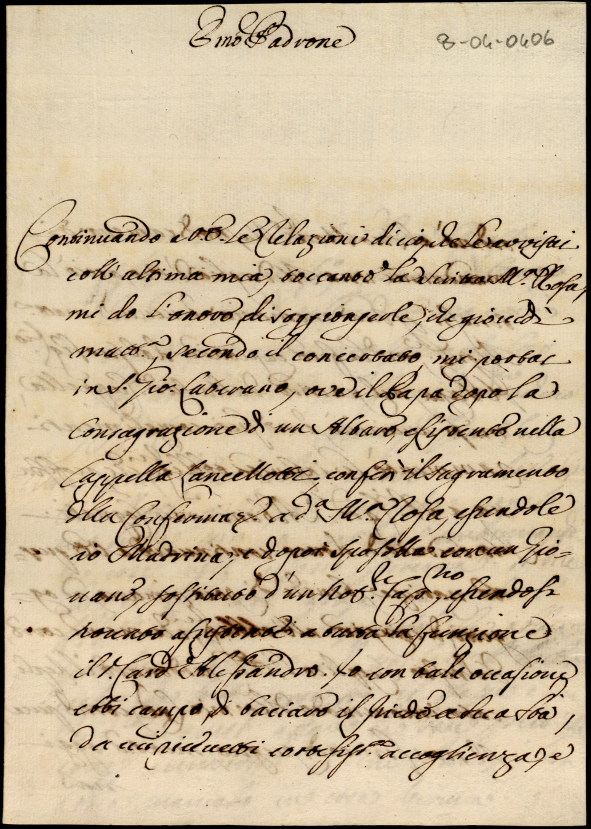 Emo Padrone
8-04-0406
Continuando a V.E. le Relazioni di ciò che le avvisai
coll' ultima mia, toccante la Schiava M.a Rosa,
mi do l'onore di soggiongerle, che giovedì
matt.a, secondo il concertato, mi portai
in S. Gio. Laterano, ove il Papa dopo la
Consagrazione di un Altare esistente nella
Cappella Lancellotti, conferì il Sagramento
della Confermaz.e a d.a M.a Rosa, essendole
io Madrina, e dopoi sposolla con un Gio-
vane, fostituito d'un Nob.le Cap.no, essendosi
trovato assistente a tutta la funzione
il S. Card. Alessandro. Io con tale occasione
ebbi campo di bacciare il piede a Sua Stà,
da cui ricevetti cortesiss.e accoglienza, e